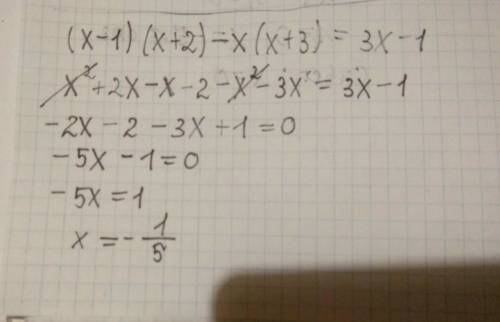 (x-1)(x+2)-x(x+3)=3x-1
x²+2x-x-2-x²-3x=3x-1
-2x-2-3x+1=0
-5x-1=0
-5x=1
x=-1/5